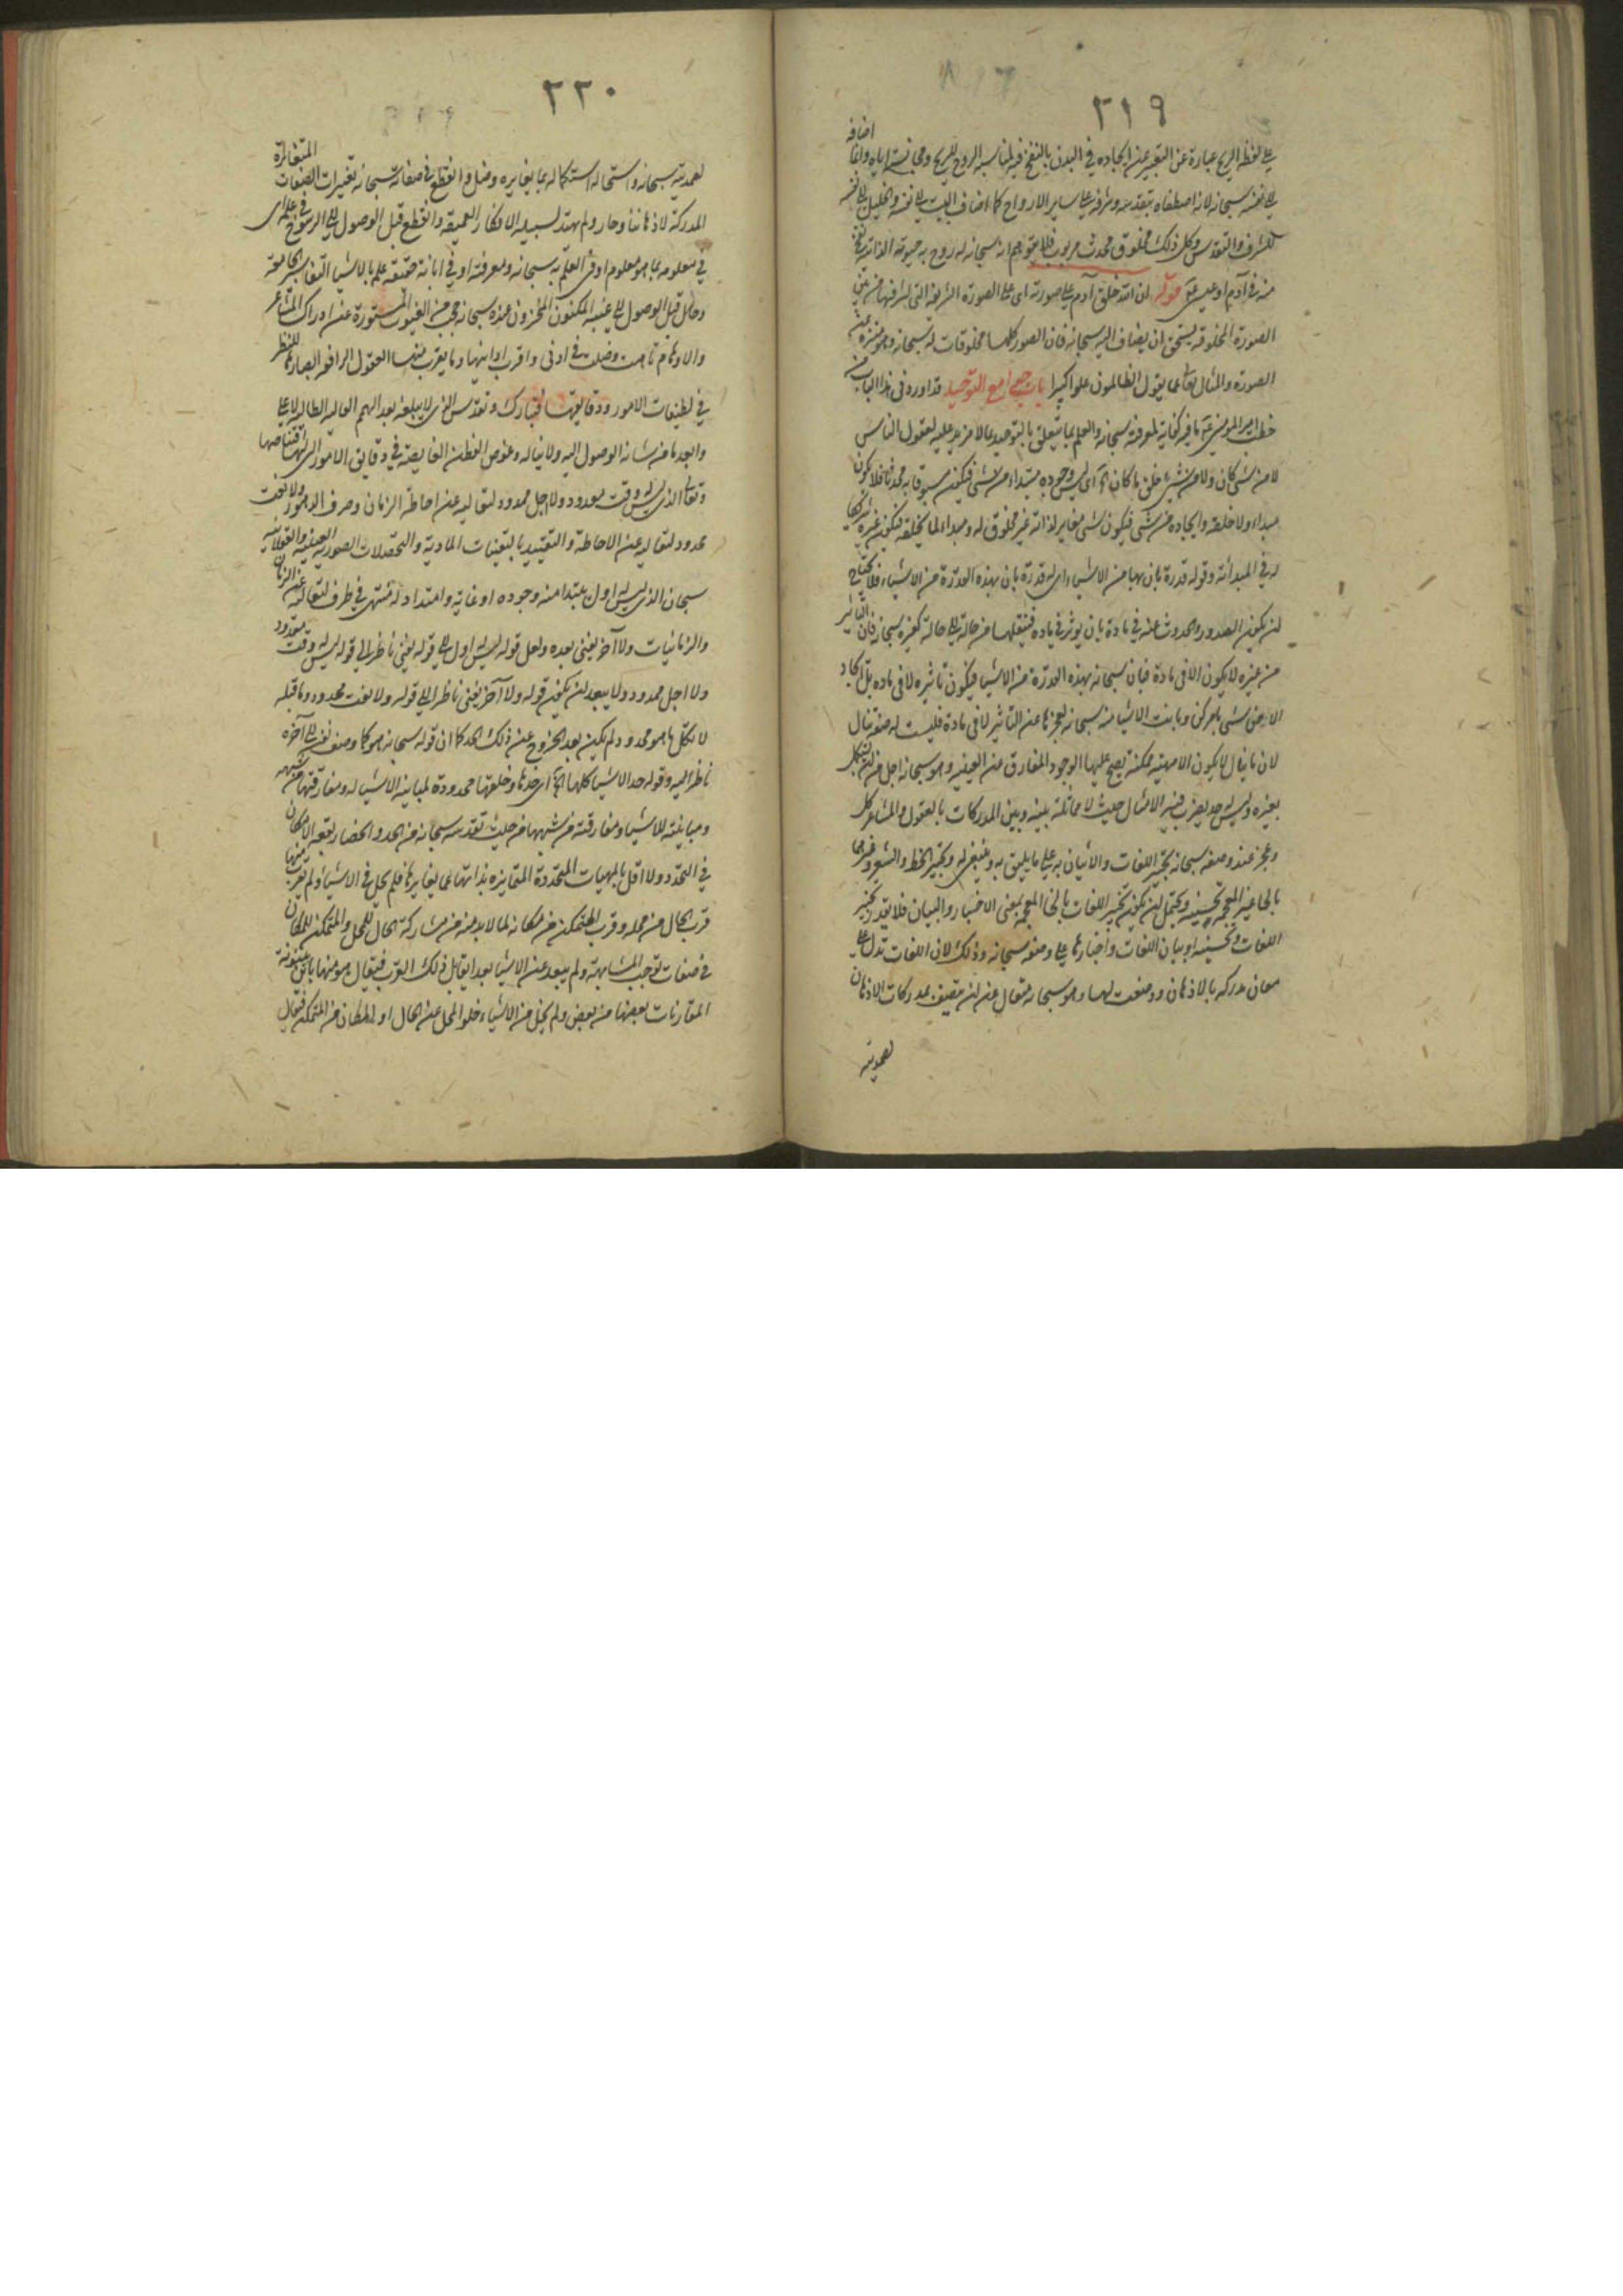 ٣١٩
على لفظ الريح عبارة عن التعبير عن ايجاده في البدن بالنفخ فيه لمناسبة الروح للريح ومجانسته اياه وانما اضافه
الى نفسه سبحانه لانه اصطفاه بتقدسه وشرفه على ساير الارواح كما اضاف البيت الى نفسه والخليل الى نفسه
للشرف والتقدس وكل ذلك مخلوق محدث مربوب فلا يتوهم انه سبحانه له روح به حيوته الذاتية
منه في آدم او عيسى قوله ان الله خلق آدم على صورته اى على الصورة الشريفة التى
الصورة المخلوقة يستحق ان يضاف اليه سبحانه فان الصور كلها مخلوقات له سبحانه وهو منزه عن
الصورة والمثال تعالى عما يقول الظالمون علوا كبيرا باب جوامع التوحيد قد اورد فى هذا الباب من
خطب امير المومنين ع ما فيه كفاية لمعرفته سبحانه والعلم بما يتعلق بالتوحيد بما لا مزيد عليه لعقول الناس
لا من شئ كان ولا من شئ خلق ما كان اى ليس وجوده مبتداء من شئ فيكون مسبوقا به محدثا فلا يكون
مبداء ولا خلقه وايجاده من شئ فيكون شئ مغاير لذاته غير مخلوق له ومبداء لما يخلقه فيكون غيره شريكا
له في المبدأية وقوله قدرة بان بها من الاشياء اى له قدرة بان بهذه القدرة من الاشياء فلا يحتاج
لان يكون الصدور والحدوث عنه في مادة بان يوثر في مادة فينقلها من حالة الى حالة كغيره سبحانه فان التاثير
من غيره لا يكون الا فى مادة فبان سبحانه بهذه القدرة من الاشياء فيكون تاثيره لا فى مادة بل ايجاد
لا عن شئ بامر كن وبانت الاشياء منه سبحانه لعجزها عن التاثير لا فى مادة فليست له صفة تنال
لان ما ينال لا يكون الا مهية ممكنة يصح عليها الوجود المفارق عن العينية وهو سبحانه اجل من
بغيره وليس له حد يضرب فيه الامثال حيث لا مماثلة بينه وبين المدركات بالعقول والمشاعر كل
وعجز عند وصفه سبحانه تحبير اللغات والاتيان به على ما يليق به وينبغى له وتحبير الخط والشعر وغيرهما
بالحا غير المعجمة تحسينه ويحتمل ان يكون تخبير اللغات بالخا المعجمة بمعنى الاخبار والبيان فلا يقدر تحبير
اللغات وتحسينه او بيان اللغات واخبارها على وصفه سبحانه وذلك لان اللغات تدل على
معان مدركة بالاذهان ووضعت لها وهو سبحانه متعال عن ان يتصف بمدركات الاذهان
لصمديته
٣٢٠
لصمديته سبحانه واستحالة استكماله بما يغايره وضل وانقطع فى صفاته سبحانه تغييرات الصفات المتغايرة
المدركة لاذهاننا وحار ولم يهتد لسبيله الافكار العميقة وانقطع قبل الوصول الى الرسوخ في علمه اى
في معلومه بما هو معلوم او في العلم به سبحانه ومعرفته او في ابانة حقيقة علمه بالاشياء التفاسير الجامعة
وحال قبل الوصول الى غيبه المكنون المخزون عنده سبحانه حجب من الغيوب المستورة عن ادراك المشاعر
والاوهام تاهت وضلت فى ادنى واقرب ادانيها وما يقرب منها العقول الرافعة ابصارها للنظر
في لطيفات الامور ودقايقها فتبارك وتقدس الذى لا يبلغه بعد الهمم العالية الطالبة لاعلى
وابعد ما من شانه الوصول اليه ولا يناله وغوص الفطن الغايصة في دقايق الامور الى نهاية اقتناصها
وتعالى الذى ليس له وقت معدود ولا اجل ممدود لتعاليه عن احاطة الزمان وصرف الدهور ولا نعت
محدود لتعاليه عن الاحاطة والتقييد بالتعينات المادية والتحصلات الصورية العينية والعقلانية
سبحان الذى ليس له اول مبتدا منه وجوده او غاية وامتداد له منتهى في طرف لتعاليه عن الزمان
والزمانيات ولا آخر يفنى بعده ولعل قوله ليس له اول الى قوله يفنى ناظر الى قوله ليس له وقت معدود
ولا اجل ممدود ولا يبعد ان يكون قوله ولا آخر يفنى ناظرا الى قوله ولا نعت محدود وما قبله
لان كل ما هو محدود لم يكن بعد الخروج عن ذلك الحد كما ان قوله سبحانه هو كما وصف نفسه الى آخره
ناظر اليه وقوله حد الاشيا كلها الخ اى حدها وخلقها محدودة لمباينة الاشيا له ومفارقتها من شبهه
ومباينته للاشيا ومفارقته من شبهها من حيث تقدسه سبحانه من الحد وانحصار بقعة الامكان
في التحدد ولا اقل بالمهيات المتحددة المتمايزة بذاتها عما يغايرها فلم يحل في الاشيا ولم يقرب منها
قرب الحال من محله وقرب المتمكن من مكانه لما لا بد منه من مشاركة الحال للمحل والمتمكن للمكان
في صفات توجب المشابهة ولم يبعد عن الاشيا بعدا يقابل ذلك القرب فيقال هو منها باين بينونة
المقارنات بعضها من بعض ولم يخل من الاشياء خلو المحل عن الحال او المكان من المتمكن فيقال